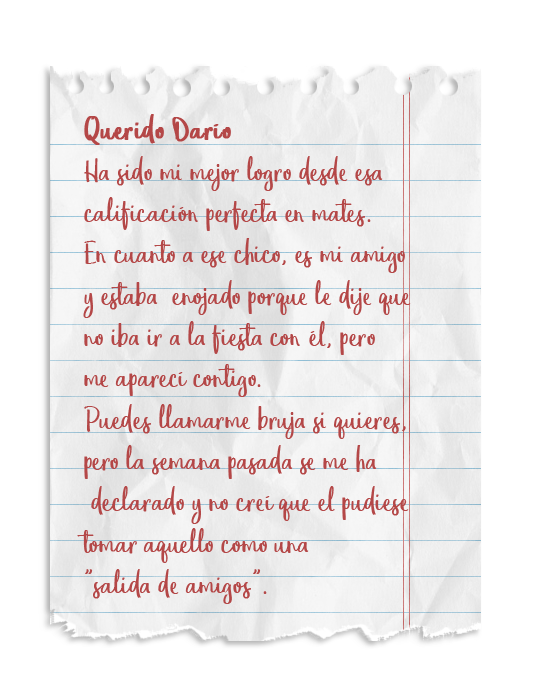 Querido Darío
Ha sido mi mejor logro desde esa
calificación perfecta en mates.
En cuanto a ese chico, es mi amigo
y estaba enojado porque le dije que
no iba ir a la fiesta con él, pero
me aparecí contigo.
Puedes llamarme bruja si quieres,
pero la semana pasada se me ha
declarado y no creí que el pudiese
tomar aquello como una
"salida de amigos".